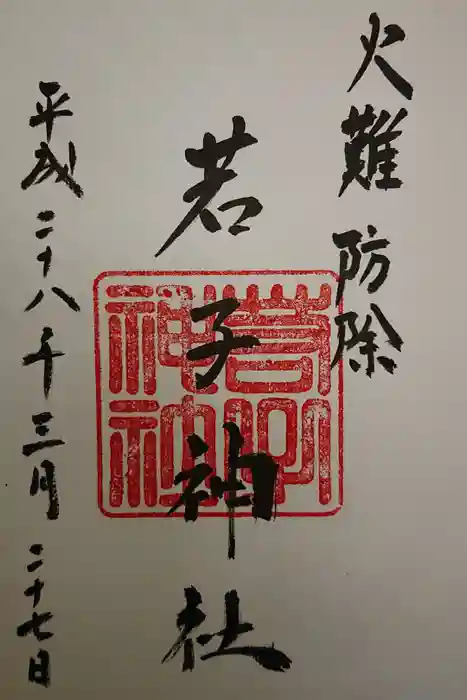 火難防除
若子神社
平成二十八年三月二十七日